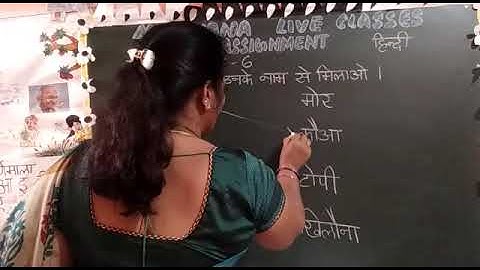 LIVE CLASSES
ASSIGNMENT हिन्दी
-6
उनके नाम से मिलाओ ।
मोर
कौआ
टोपी
खिलौना